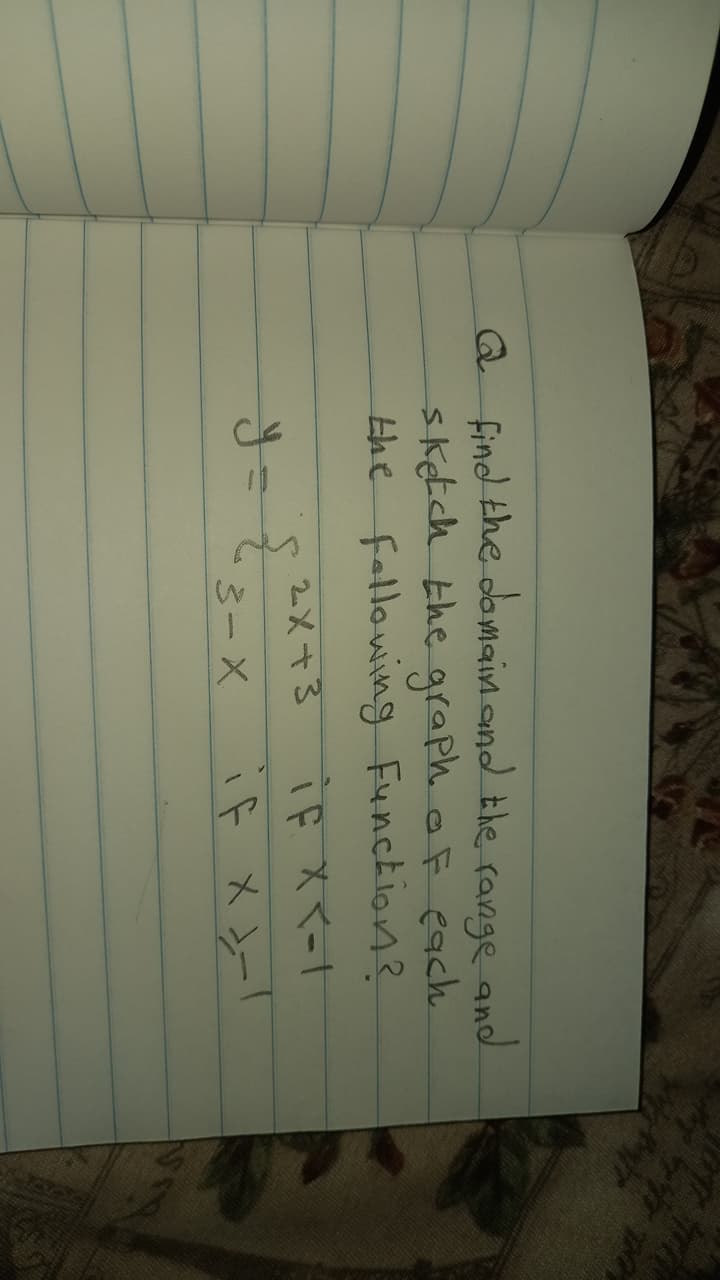 Q find the domain and the range and
sketch the graph of each
the following Function?
y = { 2x+3 if x<-1
3-x if x≥-1